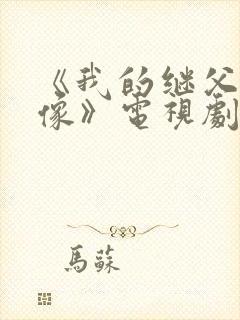 《我的继父
像》電視劇
馬蘇